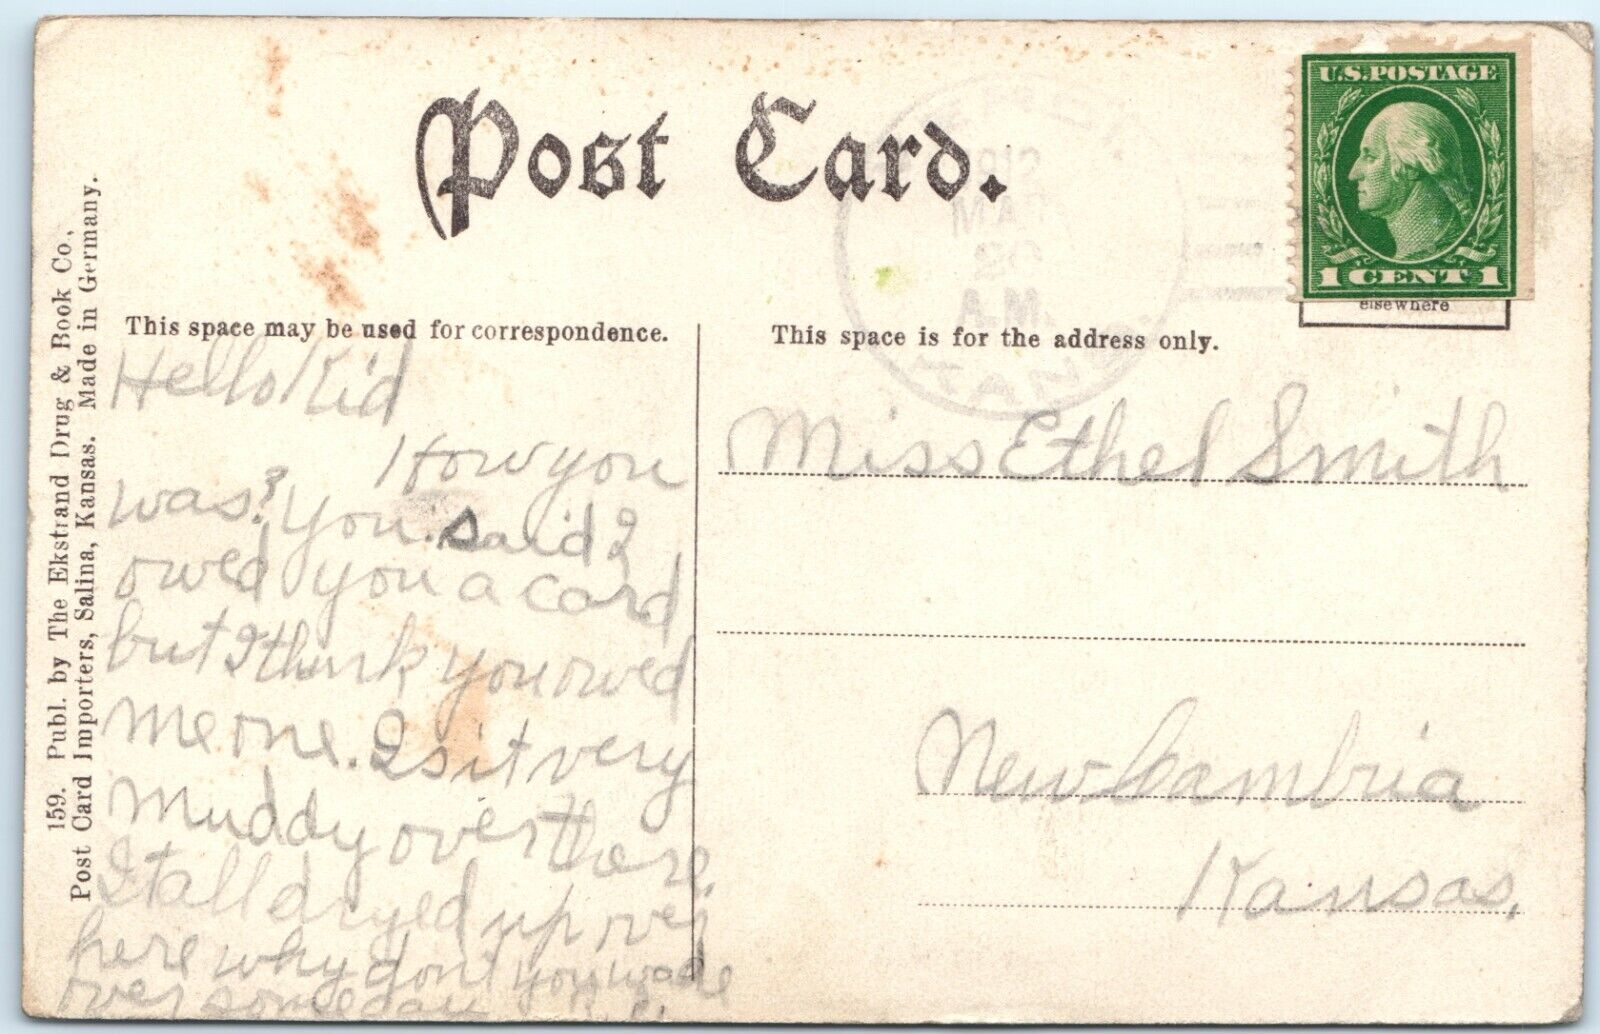 Post Card.
U.S.POSTAGE
1 CENT 1
elsewhere
159. Publ. by The Ekstrand Drug & Book Co.,
Post Card Importers, Salina, Kansas. Made in Germany.
This space may be used for correspondence.
Hello Kid
How you
was? you said I
owed you a card
but I think you owed
me one. Is it very
Muddy over there.
It all dryed up over
here why dont you wade
over someday
This space is for the address only.
Miss Ethel Smith
New Cambria
Kansas.